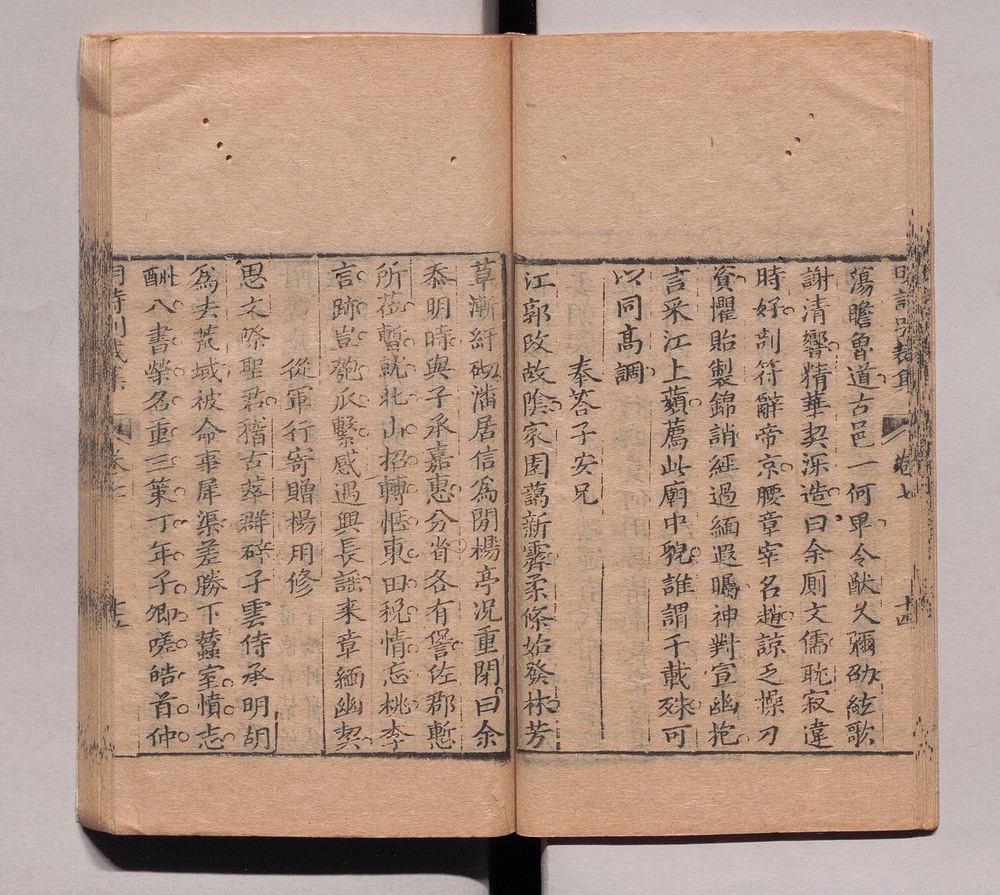 蕩瞻魯道古邑一何卑令猷久彌劭絃歌
謝清響精華契深造曰余厠文儒耽寂違
時好剖符辭帝京腰章宰名趙諒乏操刀
資懼貽製錦誚經過緬遐矚神對宣幽抱
言采江上蘋薦此廟中貌誰謂千載殊可
以同高調
奉荅子安兄
江郭改故陰家園藹新霽柔條始發林芳
卷七
十四
草漸紆砌潘居信爲閒楊亭况重閉曰余
忝明時與子承嘉惠分省各有營佐郡慙
所蒞暫就北山招轉愜東田稅情忘桃李
言跡豈匏瓜繫感遇興長謡来章緬幽契
從軍行寄贈楊用修
思文際聖君稽古萃群碎子雲侍承明胡
爲去荒域被命事犀渠差勝下蠶室憤志
酬八書榮名重三策丁年子卿嗟皓首仲